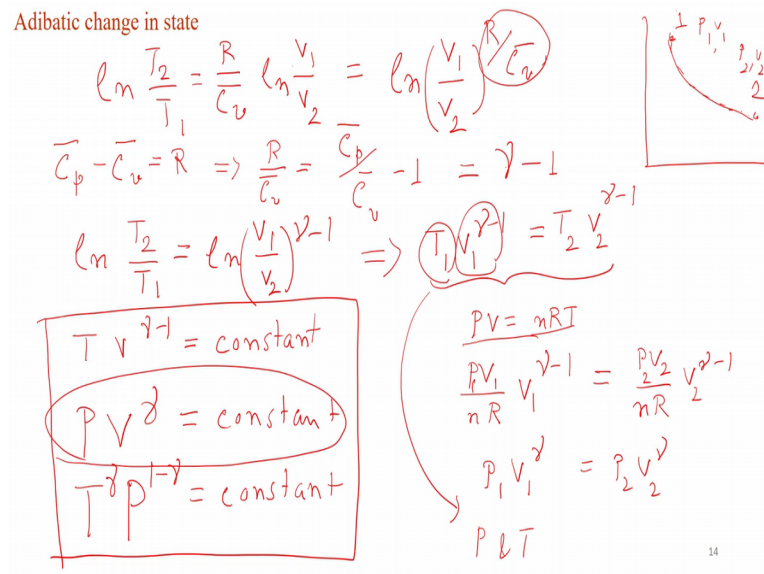 Adibatic change in state
ln T₂/T₁ = R/C̅ᵥ ln V₁/V₂ = ln(V₁/V₂)^(R/C̅ᵥ)
1 P₁, V₁
P₂, V₂
2
C̅ₚ - C̅ᵥ = R => R/C̅ᵥ = C̅ₚ/C̅ᵥ - 1 = γ - 1
ln T₂/T₁ = ln(V₁/V₂)^(γ-1) => T₁ V₁^(γ-1) = T₂ V₂^(γ-1)
T V^(γ-1) = constant
P V^γ = constant
T^γ P^(1-γ) = constant
PV = nRT
P₁V₁/nR V₁^(γ-1) = P₂V₂/nR V₂^(γ-1)
P₁ V₁^γ = P₂ V₂^γ
P & T
14